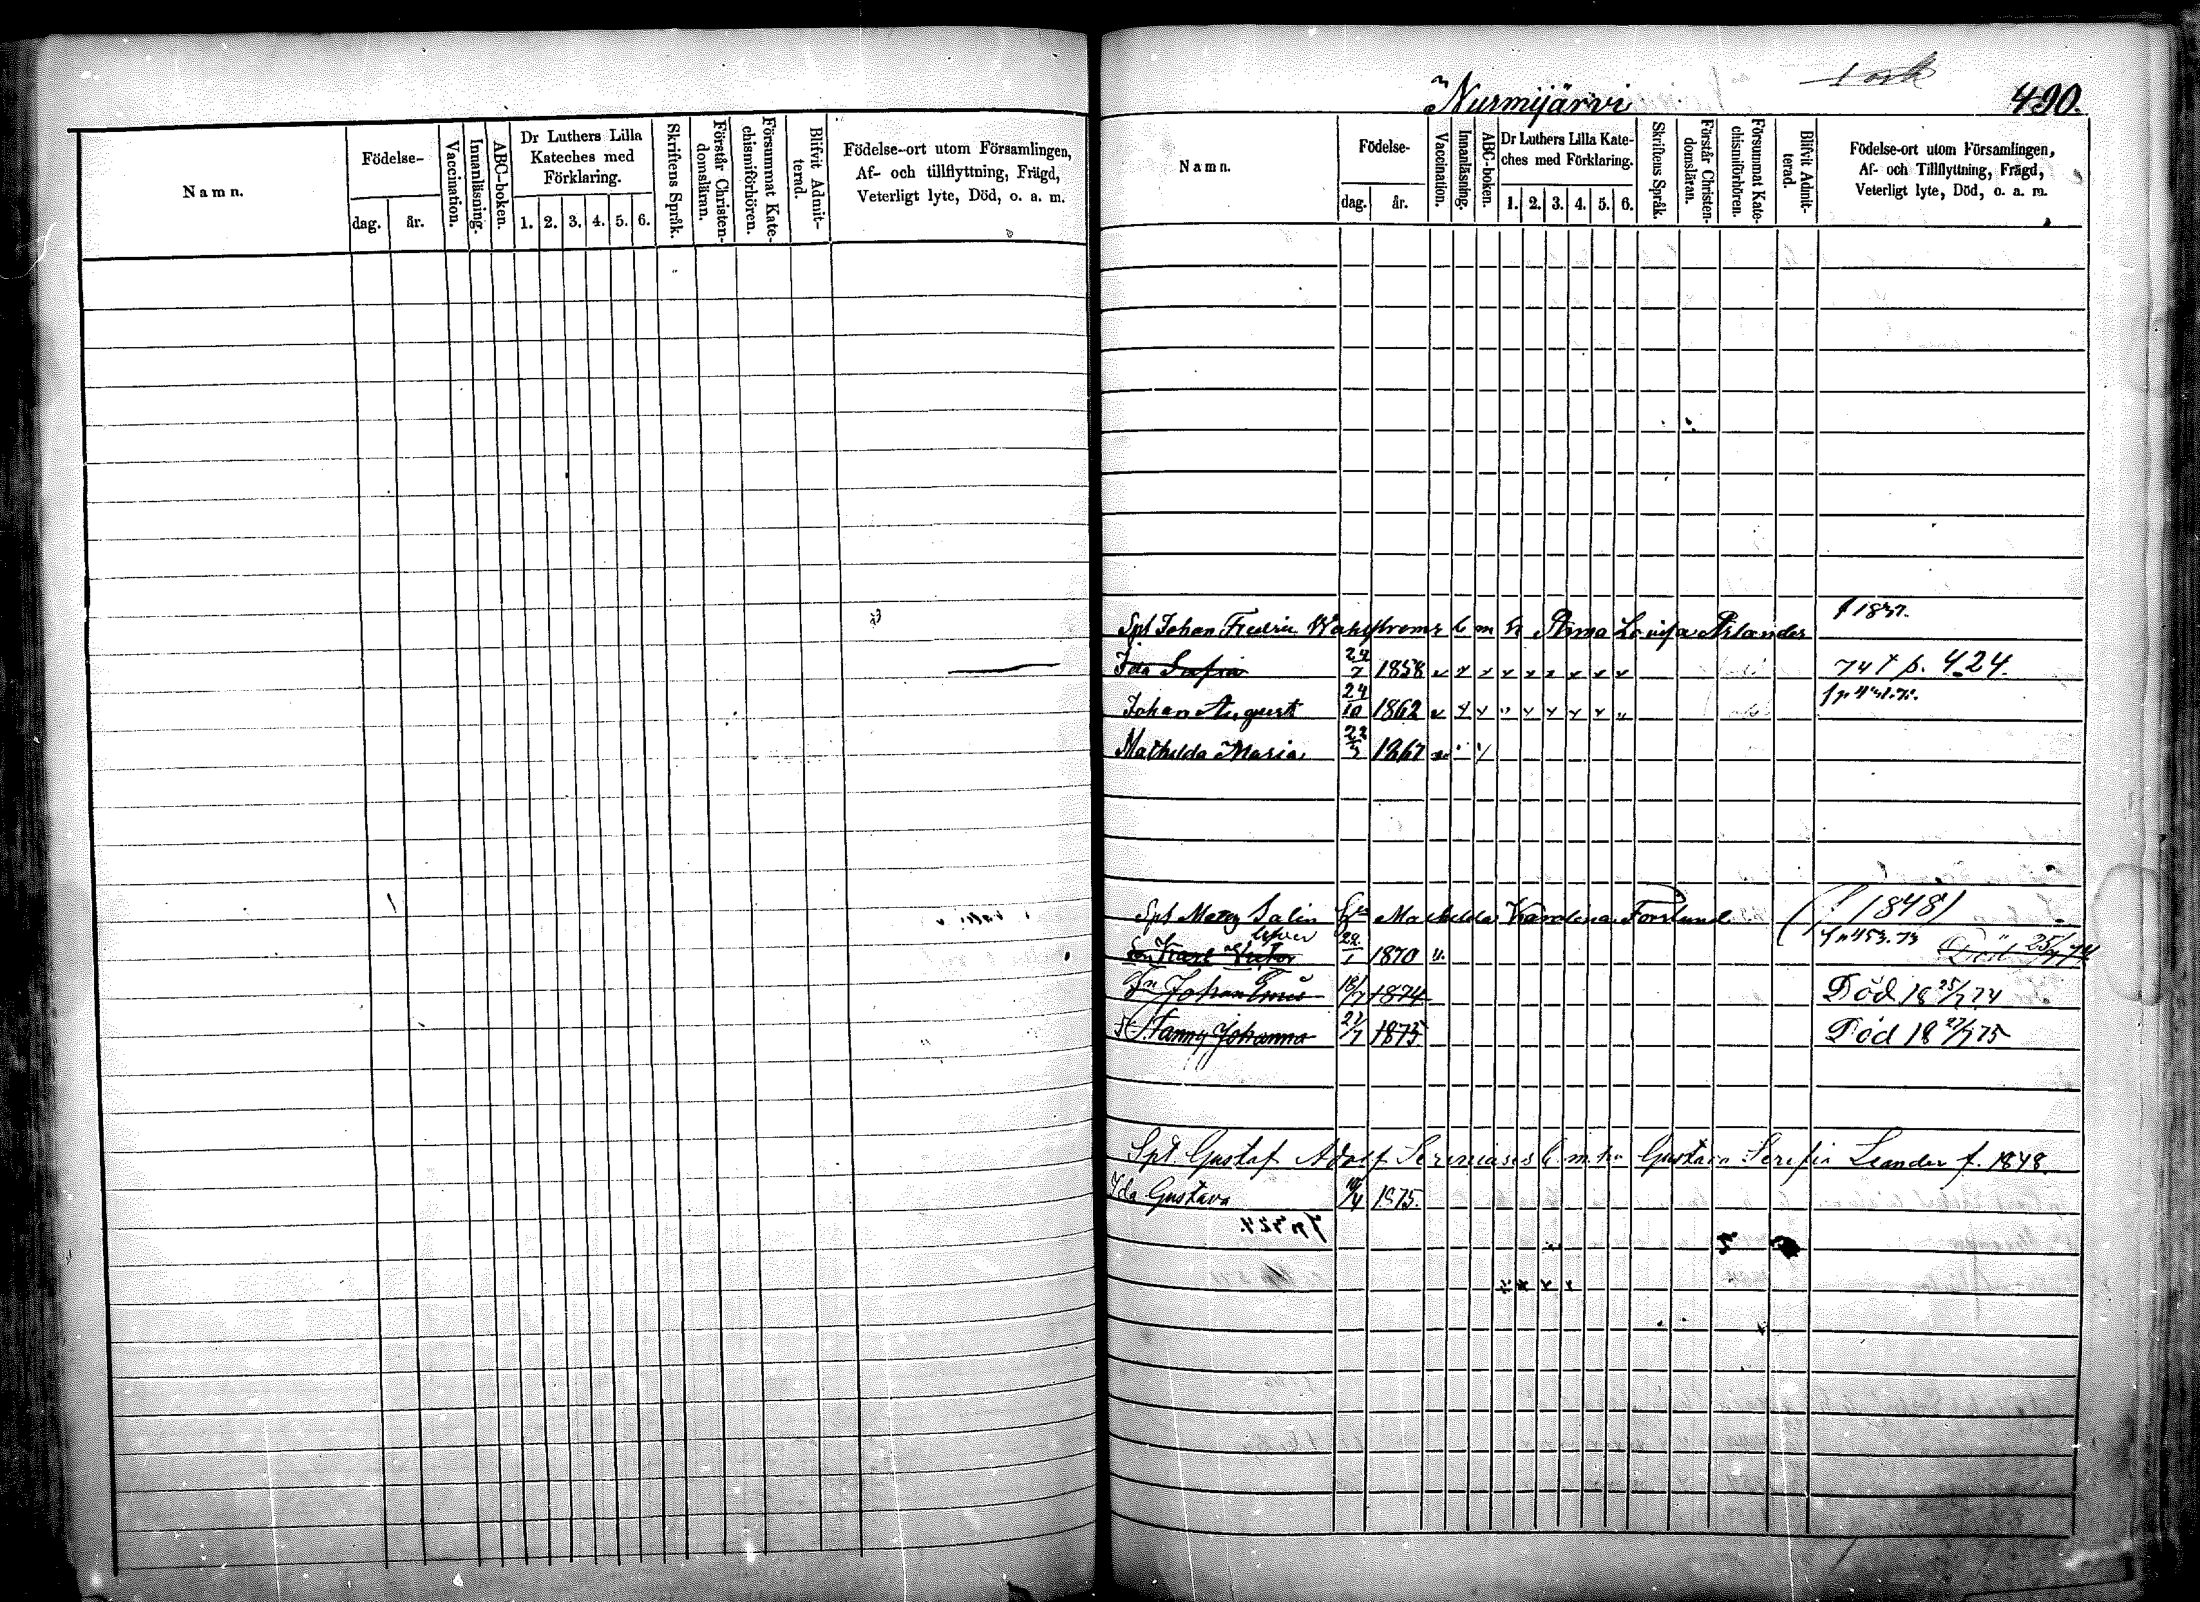 Nurmijärvi
490.
Namn.
Födelse-
dag.
år.
Vaccination.
Innanläsning.
ABC-boken.
Dr Luthers Lilla
Kateches med
Förklaring.
1. 2. 3. 4. 5. 6.
Skriftens Språk.
Förstår Christen-
domsläran.
Försummat Kate-
chismiförhören.
Blifvit Admit-
terad.
Födelse-ort utom Församlingen,
Af- och tillflyttning, Frägd,
Veterligt lyte, Död, o. a. m.
Namn.
Födelse-
dag.
år.
Vaccination.
Innanläsning.
ABC-boken.
Dr Luthers Lilla Kate-
ches med Förklaring.
1. 2. 3. 4. 5. 6.
Skriftens Språk.
Förstår Christen-
domsläran.
Försummat Kate-
chismiförhören.
Blifvit Admit-
terad.
Födelse-ort utom Församlingen,
Af- och Tillflyttning, Frägd,
Veterligt lyte, Död, o. a. m.
Johan Fredric Wahlstroms Anna Lovisa f 1837.
Ida Sofia 24/7 1858 74 p. 424.
Johan August 24/10 1862
Mathilda Maria 22/3 1867
Salin Mathilda Karolina Forslund (f 1848)
Karl Victor 22/1 1870 Död 25/7 74
Johan 18/7 1874 Död 18 25/7 74
Fanny Johanna 22/7 1875 Död 18 27/7 75
Spt. Gustaf Adolf Gustava Serefia Leander f. 1848.
Ida Gustava 1875.